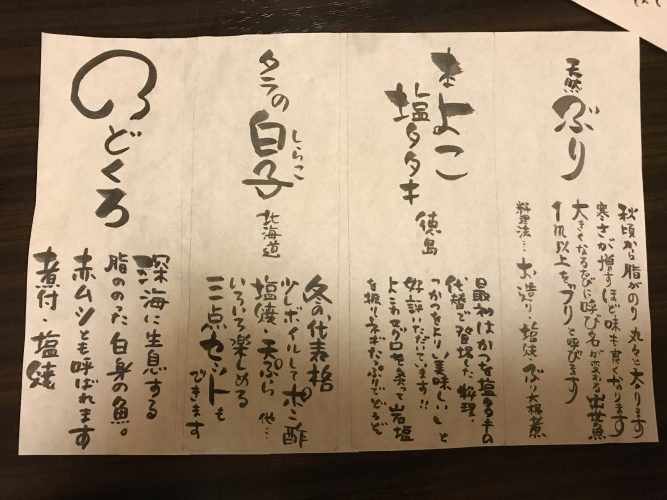 天然
ぶり
秋頃から脂がのり 丸々と太ります
寒さが増すほど味も良くなります
大きくなるたびに呼び名が変わる出世魚
以上を"ブリ"と呼びます
料理法…お造り・塩焼 ぶり大根煮
本よこ
塩タタキ
徳島
最初はかつを塩タタキの
代替で登場した料理・
「かつをより美味しい」と
好評いただいています!!
よこわまぐろを炙って岩塩
タラの
白子
しらこ
北海道
冬の代表格
少しボイルしてポン酢
塩焼 天ぷら 他…
いろいろ楽しめる
三点セットも
できます
のどくろ
深海に生息する
脂ののった白身の魚。
赤ムツとも呼ばれます
煮付・塩焼